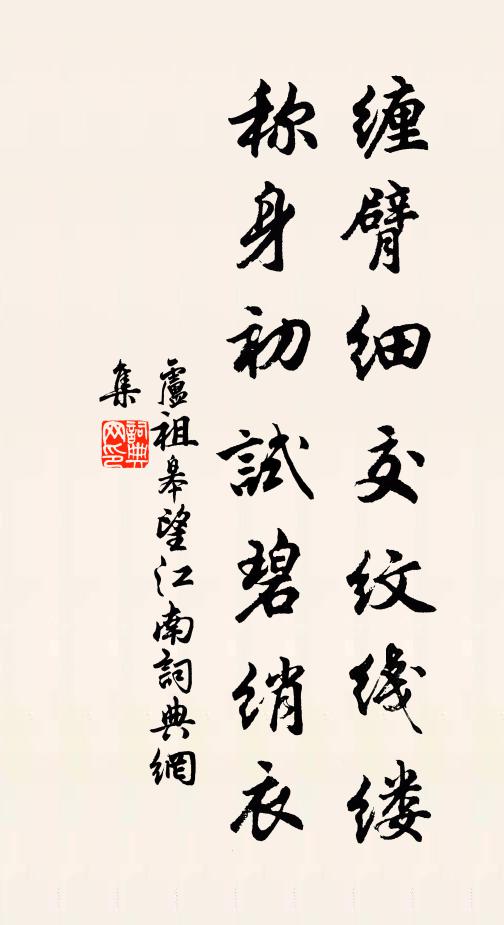 缠臂细交纹线缕
称身初試碧绡衣
盧祖皋望江南詞典網
集
詞典网印